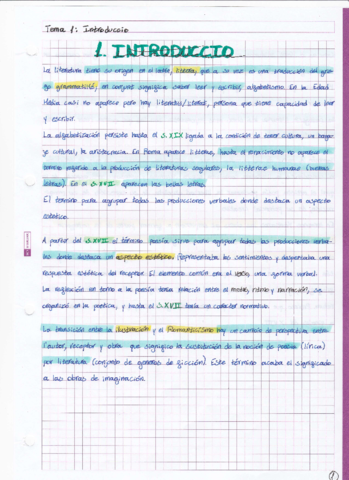 Tema 1: Introducció
1. INTRODUCCIO
La literatura tiene su origen en el latín, littera, que a su vez es una traducción del grie
go grammatiké, en conjunt significa saber leer y escribir, alfabetismo. En la Edad
Media casi no aparece pero hay literatus/literati, persona que tiene capacidad de leer
y escribir.
La alfabetización persiste hasta el S.XIX ligada a la condición de tener cultura, un baga
je cultural, la aristocracia. En Roma aparece litterae, hasta el renacimiento no aparece el
término referido a la producción de literaturas seculares, la litterae humanae (buenas
letras). En el S.XVII aparecen las belas letras.
El término para agrupar todas las producciones verbales donde destaca un aspecto
estético.
A partir del S.XVII el término poesía sirve para agrupar todas las producciones verba-
les donde destaca un aspecto estético. Representaba los sentimientos y despertaba una
respuesta estética del receptor. El elemento común era el verso, una norma verbal.
La reflexión en torno a la poesía tenía relación entre el modo, ritmo y narración, se
organizó en la poética, y hasta el S.XVII tenía un carácter normativo.
La transición entre la Ilustración y el Romanticismo hay un cambio de perspectiva entre
l'autor, receptor y obra que significa la sustitución de la noción de poesía (lírica)
por literatura (conjunto de géneros de ficción). Este término acaba el significado
a las obras de imaginación.
1